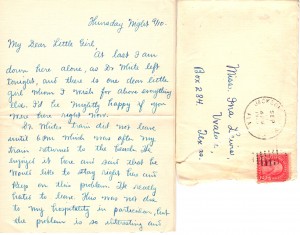 Thursday Night 9/10.
My Dear Little Girl,
At last I am
down here alone, as Dr White left
tonight, and there is one dear little
girl whom I wish for above everything
else. I'd be mighty happy if you
were here right now.
Dr. Whites train did not leave
until 8 pm which was after my
train returned to the beach. He
enjoyed it here and said that he
would like to stay right here and
keep on this problem. He really
hates to leave. This was not due
to my hospitality in particular, but
the problem is so interesting and
Miss Ina
Box 284,
Uvalde,
Texas.
SEP